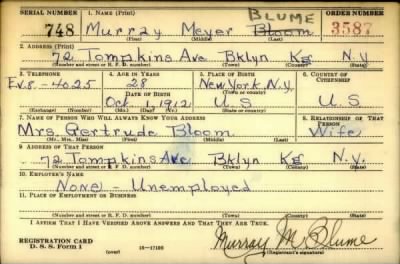 SERIAL NUMBER 1. NAME (Print) BLUME ORDER NUMBER
748 Murray Meyer Bloom 3587
(First) (Middle) (Last)
2. ADDRESS (Print)
72 Tompkins Ave Bklyn Kg N.Y.
(Number and street or R. F. D. number) (Town) (County) (State)
3. TELEPHONE 4. AGE IN YEARS 5. PLACE OF BIRTH 6. COUNTRY OF CITIZENSHIP
Ev.8-4025 28 New York N.Y.
DATE OF BIRTH
Oct 1, 1912 U S U S
(Exchange) (Number) (Mo.) (Day) (Yr.) (State or country)
7. NAME OF PERSON WHO WILL ALWAYS KNOW YOUR ADDRESS 8. RELATIONSHIP OF THAT PERSON
Mrs. Gertrude Bloom Wife
(Mr., Mrs., Miss) (First) (Middle) (Last)
9. ADDRESS OF THAT PERSON
72 Tompkins Ave Bklyn Kg N.Y.
(Number and street or R. F. D. number) (Town) (County) (State)
10. EMPLOYER'S NAME
None - Unemployed
11. PLACE OF EMPLOYMENT OR BUSINESS
(Number and street or R. F. D. number) (Town) (County) (State)
I AFFIRM THAT I HAVE VERIFIED ABOVE ANSWERS AND THAT THEY ARE TRUE.
REGISTRATION CARD
D. S. S. Form 1 (over) 16-17105 Murray M. Blume
(Registrant's signature)